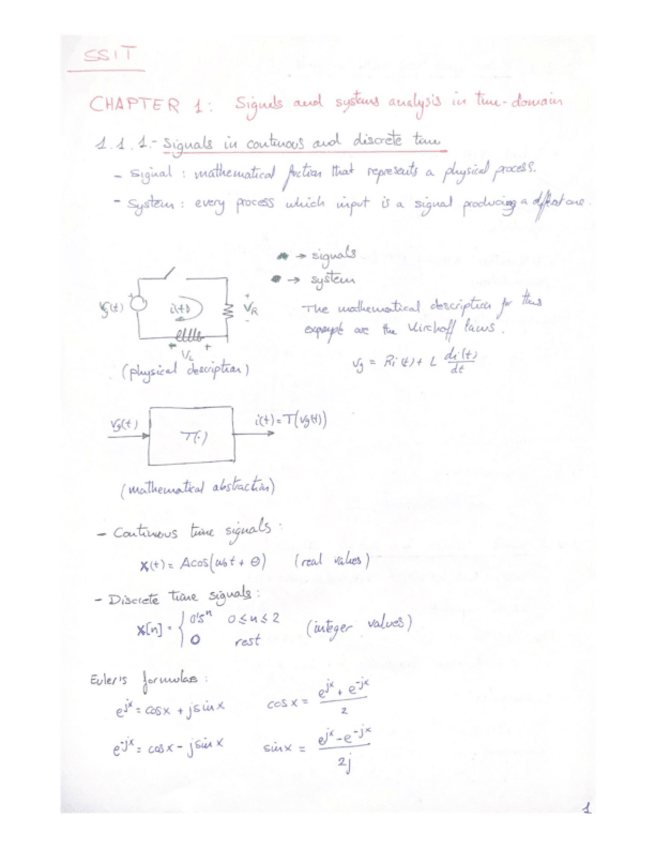 SSIT
CHAPTER 1: Signals and systems analysis in time-domain
1.1.1.- Signals in continous and discrete time
- Signal: mathematical fnction that represents a physical process.
- System: every process which input is a signal producing a different one.
→ signals
→ system
Vg(t)
i(t)
+
VR
-
- VL +
The mathematical description for this
example are the Kirchoff laws.
Vg = Ri(t) + L di(t)/dt
(physical description)
Vg(t)
T(·)
i(t) = T(Vg(t))
(mathematical abstraction)
- Continous time signals:
x(t) = Acos(ω0t + θ) (real values)
- Discrete time signals:
x[n] = { 0's^n 0≤n≤2
0 rest (integer values)
Euler's formulas:
e^jx = cosx + jsinx cosx = (e^jx + e^-jx)/2
e^-jx = cosx - jsinx sinx = (e^jx - e^-jx)/2j
1